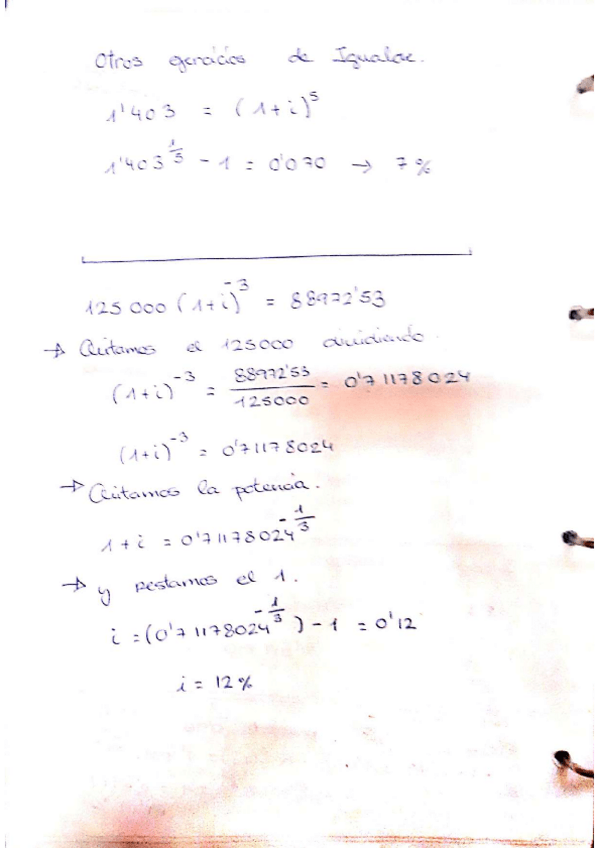 Otros ejercicios de Igualar.
1'403 = (1+i)^5
1'403^(1/5) - 1 = 0'070 → 7%
125 000 (1+i)^-3 = 88972'53
→ Quitamos el 125000 dividiendo.
(1+i)^-3 = 88972'53/125000 = 0'71178024
(1+i)^-3 = 0'71178024
→ Quitamos la potencia.
1+i = 0'71178024^(-1/3)
→ y restamos el 1.
i = (0'71178024^(-1/3)) - 1 = 0'12
i = 12%